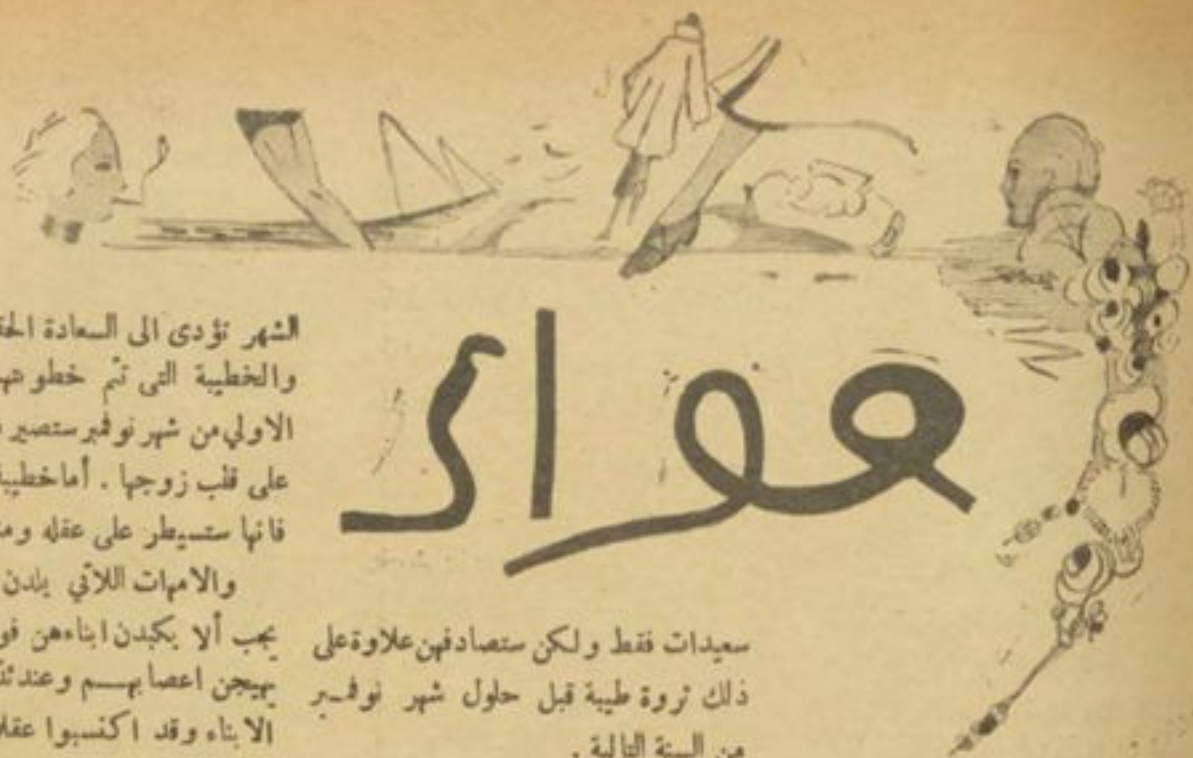 سعيدات فقط ولكن ستصادفهن علاوة على
ذلك ثروة طيبة قبل حلول شهر نوفمبر
من السنة التالية .
الشهر تؤدى الى السعادة
والخطيبة التى تتم
الاولي من شهر نوفمبر ستصير
على قلب زوجها . أما خطيبة
فانها ستسيطر على عقله
والامهات اللاتي يلدن
يجب ألا يكبدن ابناءهن
يهيجن اعصابهم وعندئذ
الابناء وقد اكتسبوا